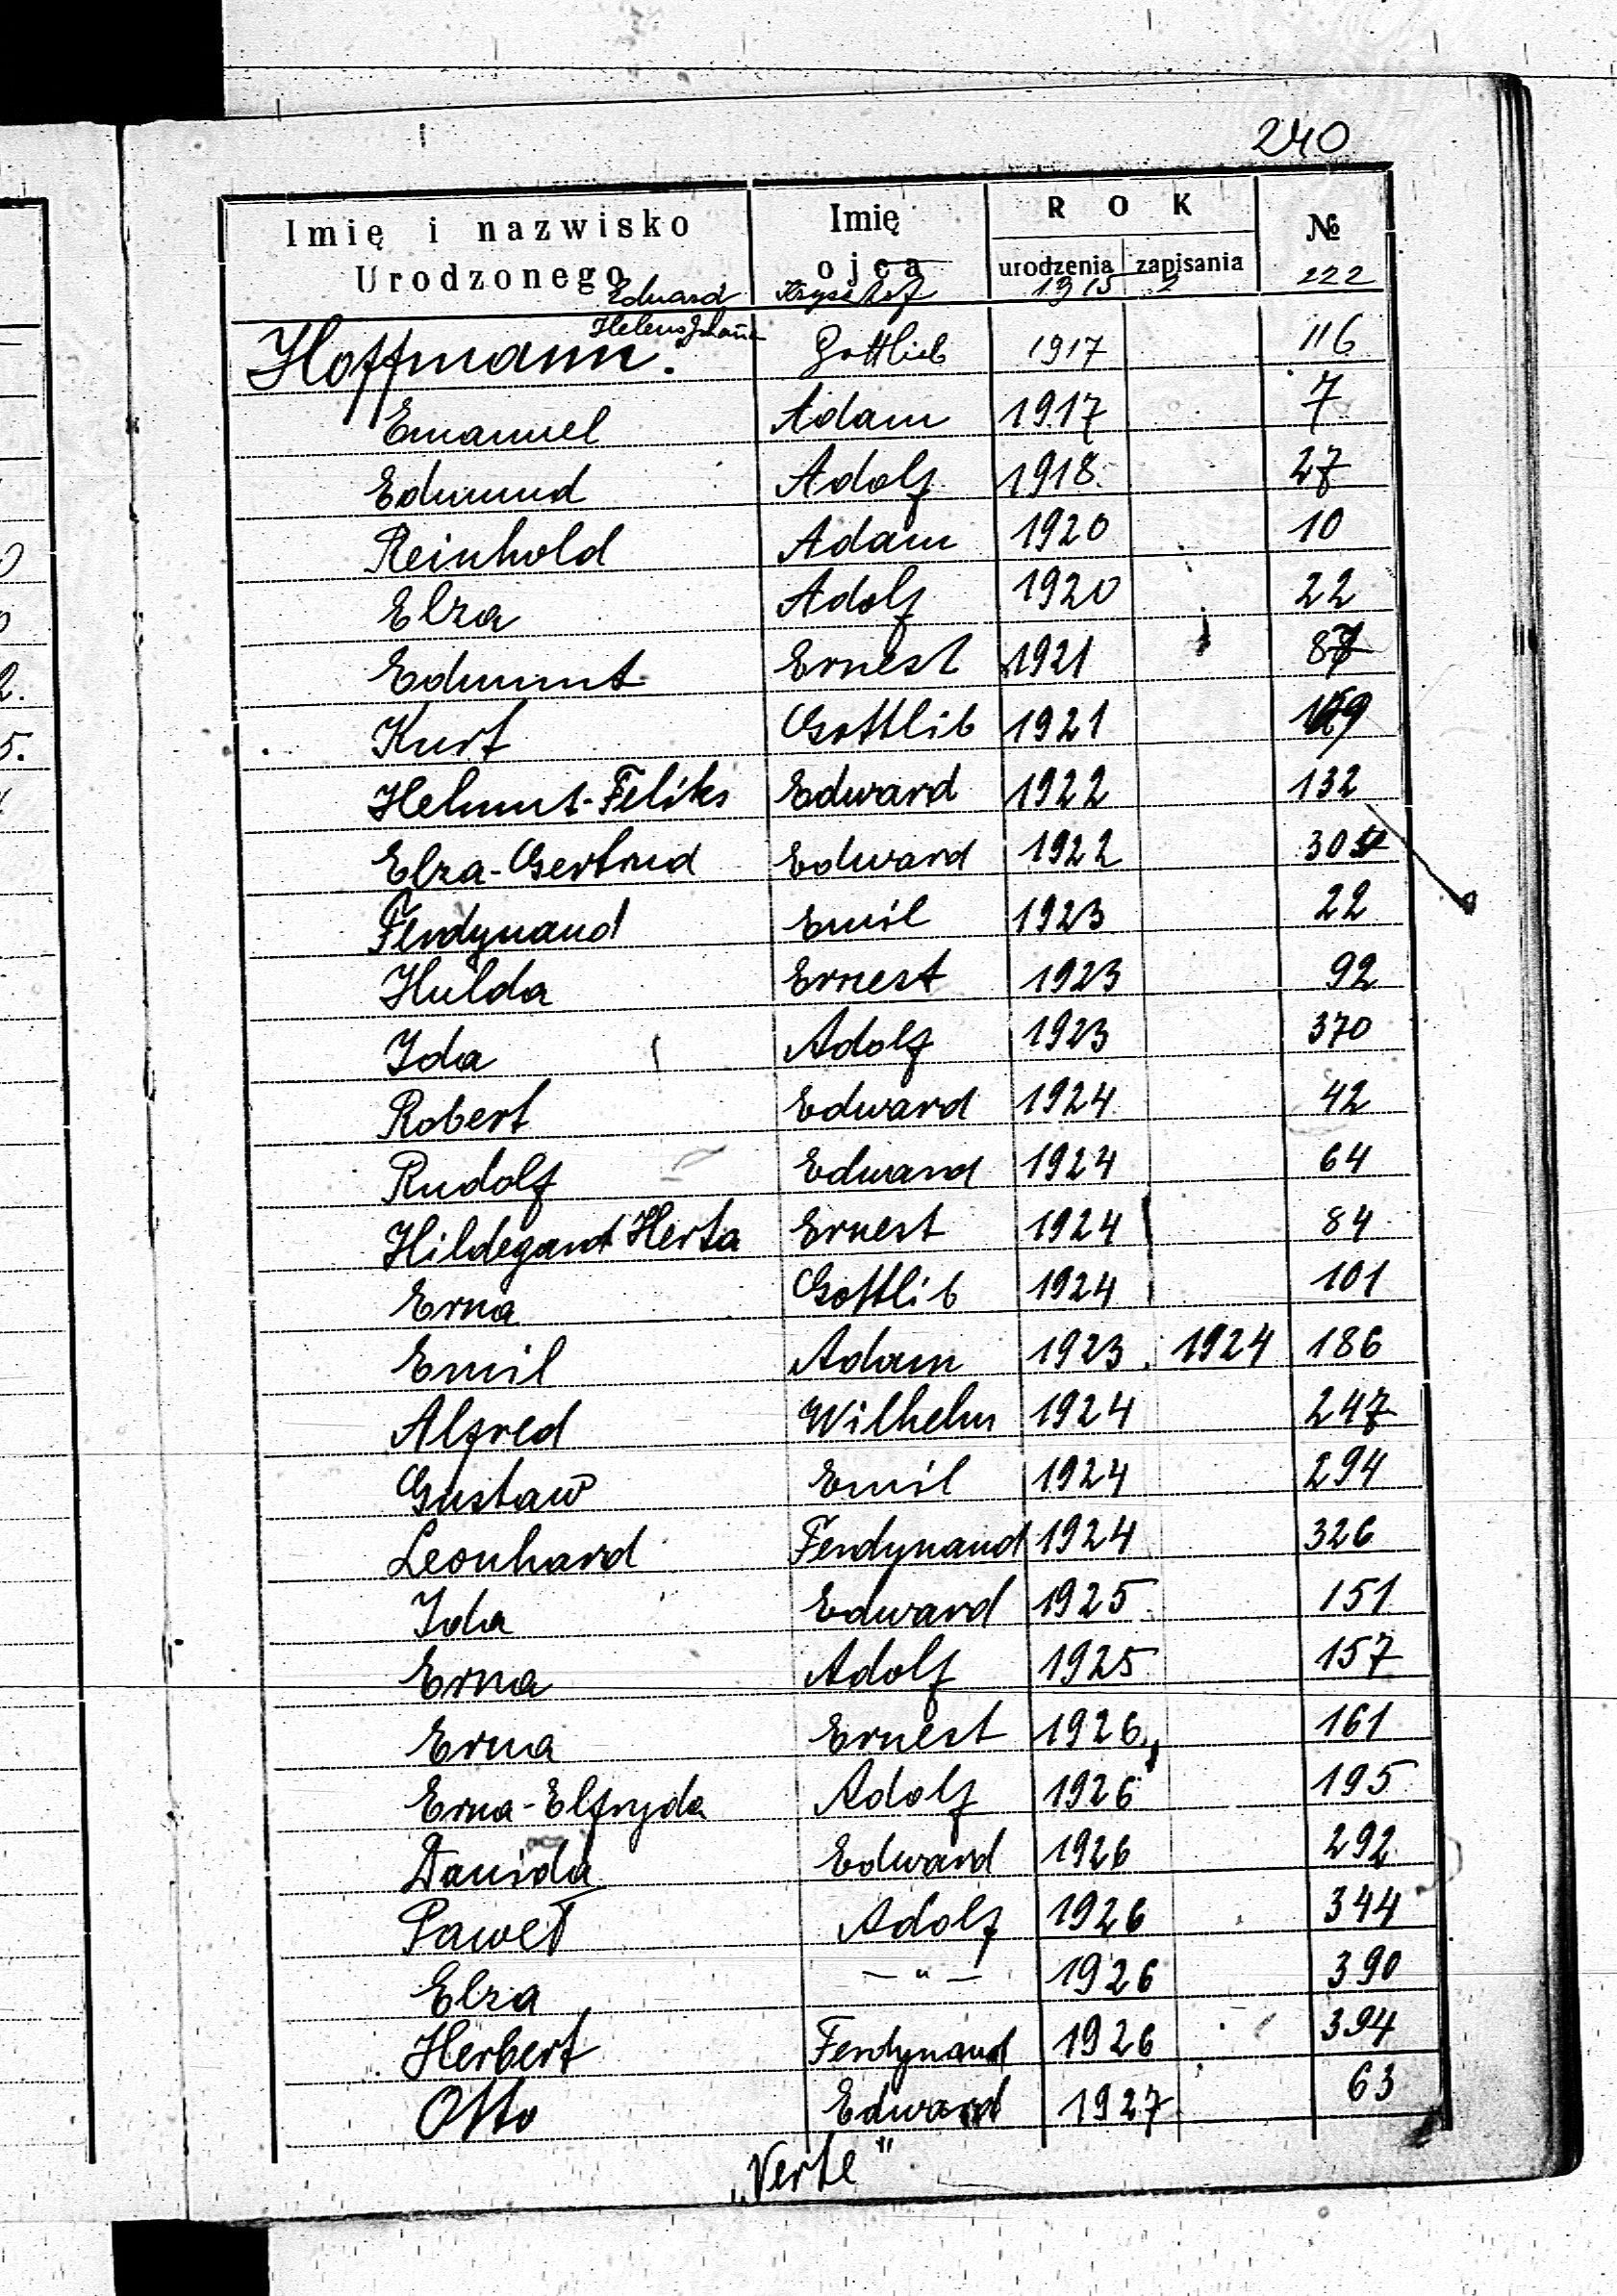 240
Imię i nazwisko Urodzonego Imię ojca ROK urodzenia zapisania №
Eduard Krysztof 1915 2 222
Hoffmann. Helena Gottlieb 1917 116
Emanuel Adam 1917 7
Edmund Adolf 1918 27
Reinhold Adam 1920 10
Elza Adolf 1920 22
Edmunt Ernest 1921
Kurt Gottlib 1921
Helmut-Feliks Edward 1922 132
Elza-Gertrud Edward 1922
Ferdynand Emil 1923 22
Hulda Ernest 1923 92
Ida Adolf 1923 370
Robert Edward 1924 42
Rudolf Edward 1924 64
Hildegard Herta Ernest 1924 84
Erna Gottlib 1924 101
Emil Adam 1923 1924 186
Alfred Wilhelm 1924 247
Gustaw Emil 1924 294
Leonhard Ferdynand 1924 326
Ida Edward 1925 151
Erna Adolf 1925 157
Erna Ernest 1926 161
Erna-Elfryda Adolf 1926 195
Edward 1926 292
Paweł Adolf 1926 344
Elza — " — 1926 390
Herbert Ferdynand 1926 394
Otto Edward 1927 63
„Verte"